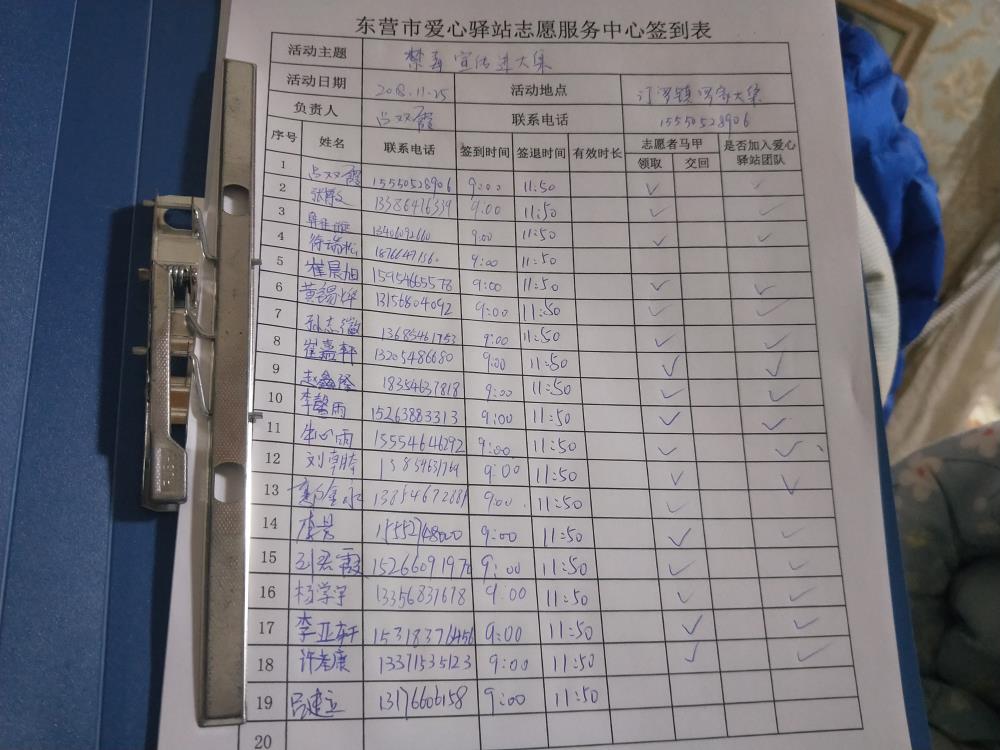 东营市爱心驿站志愿服务中心签到表
活动主题 禁毒宣传进大集
活动日期 2018.11.25 活动地点 汀罗镇 大集
负责人 吕双霞 联系电话 15550528906
序号 姓名 联系电话 签到时间 签退时间 有效时长 志愿者马甲 领取 交回 是否加入爱心驿站团队
1 吕双霞 15550528906 9:00 11:50 ✓ ✓
2 13386416339 9:00 11:50 ✓ ✓
3 13406092660 9:00 11:50 ✓ ✓
4 徐瑞松 9:00 11:50
5 崔晨旭 15954665578 9:00 11:50 ✓ ✓
6 黄锡烨 13156804092 9:00 11:50 ✓ ✓
7 13685461753 9:00 11:50 ✓ ✓
8 崔嘉轩 13205486680 9:00 11:50 ✓ ✓
9 赵鑫隆 18354637818 9:00 11:50 ✓ ✓
10 李馨雨 15263883313 9:00 11:50 ✓ ✓
11 朱心雨 15554646292 9:00 11:50 ✓ ✓
12 刘朝阵 9:00 11:50 ✓ ✓
13 9:00 11:50 ✓
14 15552748000 9:00 11:50 ✓ ✓
15 刘君霞 9:00 11:50 ✓ ✓
16 杨学宇 13356831678 9:00 11:50 ✓ ✓
17 李亚轩 15318376456 9:00 11:50 ✓ ✓
18 许孝康 13371535123 9:00 11:50 ✓ ✓
19 吕建立 13176606158 9:00 11:50
20